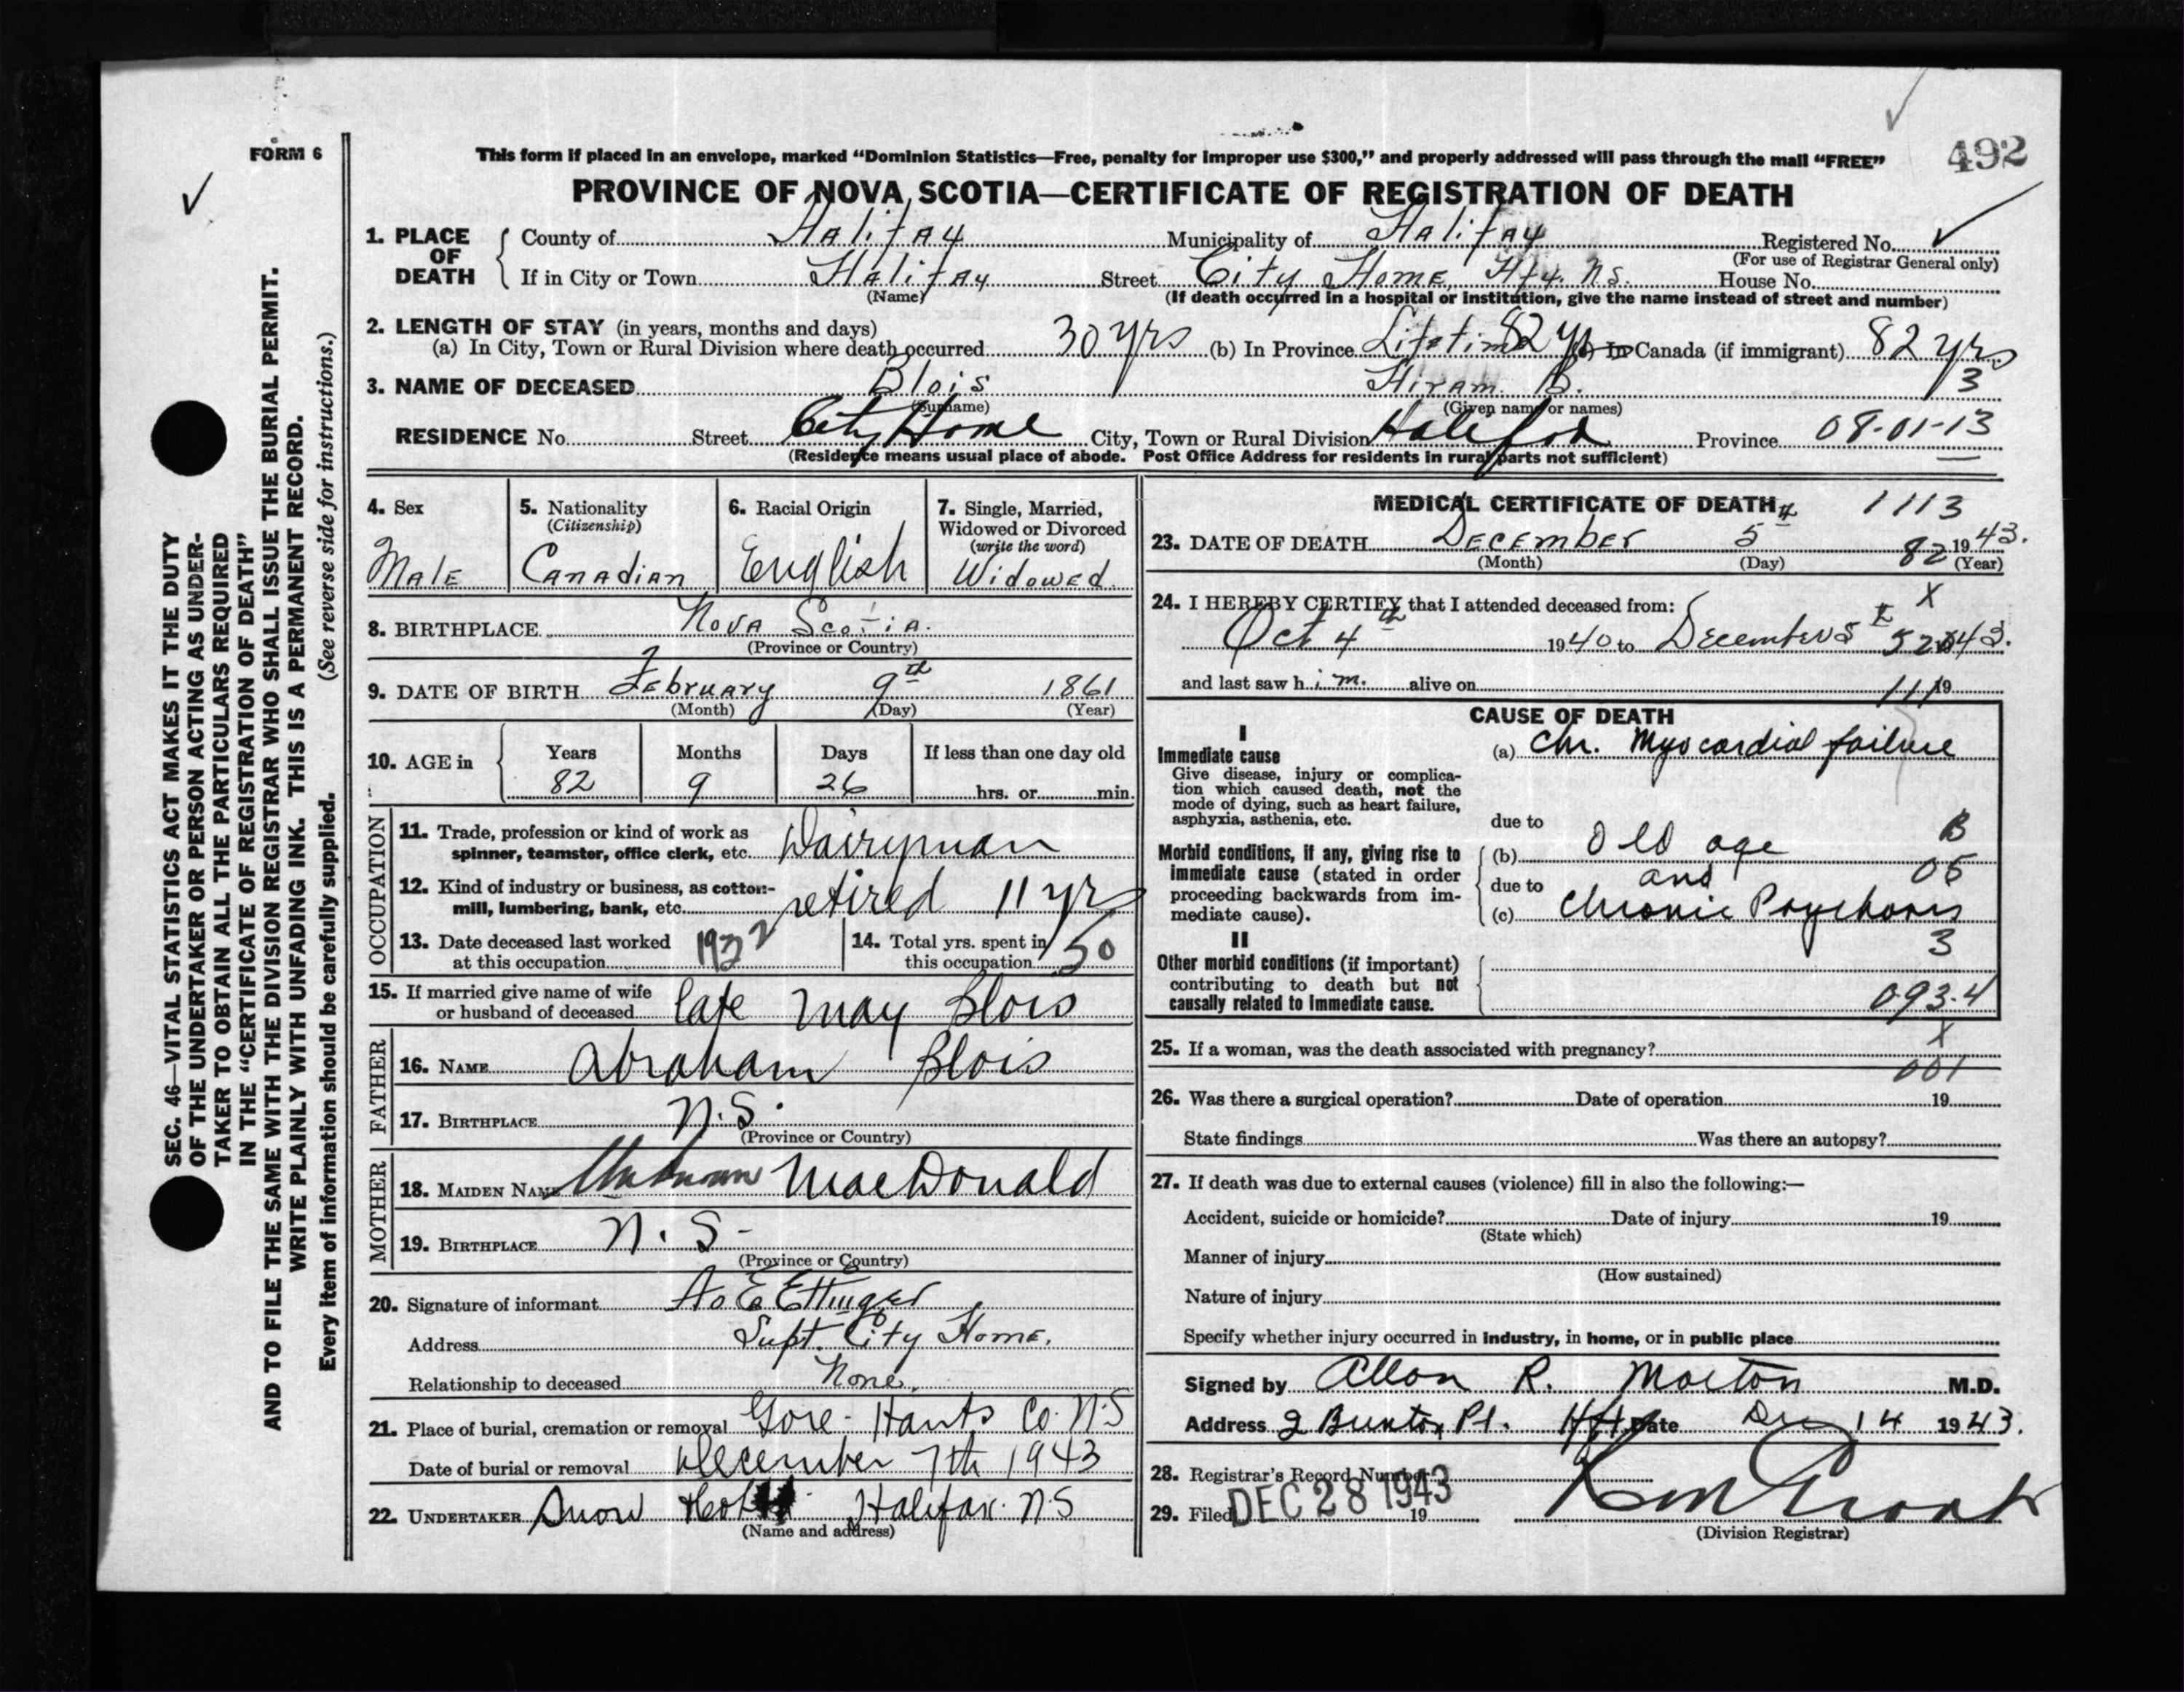 FORM 6
This form if placed in an envelope, marked “Dominion Statistics—Free, penalty for improper use $300,” and properly addressed will pass through the mail “FREE”
492
PROVINCE OF NOVA SCOTIA—CERTIFICATE OF REGISTRATION OF DEATH
1. PLACE OF DEATH
County of Halifax Municipality of Halifax Registered No.
(For use of Registrar General only)
If in City or Town Halifax Street City Home, Hfx. N.S. House No.
(Name) (If death occurred in a hospital or institution, give the name instead of street and number)
2. LENGTH OF STAY (in years, months and days)
(a) In City, Town or Rural Division where death occurred 30 yrs (b) In Province Lifetime 82 yrs In Canada (if immigrant) 82 yrs
3
3. NAME OF DECEASED Blois Hiram B.
(Surname) (Given name or names)
RESIDENCE No. Street City Home City, Town or Rural Division Halifax Province 08-01-13
(Residence means usual place of abode. Post Office Address for residents in rural parts not sufficient)
4. Sex
Male
5. Nationality
(Citizenship)
Canadian
6. Racial Origin
English
7. Single, Married,
Widowed or Divorced
(write the word)
Widowed
8. BIRTHPLACE Nova Scotia.
(Province or Country)
9. DATE OF BIRTH February 9th 1861
(Month) (Day) (Year)
10. AGE in
Years Months Days If less than one day old
82 9 26 hrs. or min.
OCCUPATION
11. Trade, profession or kind of work as
spinner, teamster, office clerk, etc. Dairyman
12. Kind of industry or business, as cotton-
mill, lumbering, bank, etc. retired 11 yrs
13. Date deceased last worked
at this occupation 1932
14. Total yrs. spent in
this occupation 50
15. If married give name of wife
or husband of deceased late May Blois
FATHER
16. NAME Abraham Blois
17. BIRTHPLACE N.S.
(Province or Country)
MOTHER
18. MAIDEN NAME Unknown MacDonald
19. BIRTHPLACE N.S-
(Province or Country)
20. Signature of informant E Ettinger
Address Supt. City Home.
Relationship to deceased None.
21. Place of burial, cremation or removal Gore - Hants Co. N.S
Date of burial or removal December 7th 1943
22. UNDERTAKER Snow Halifax N.S
(Name and address)
MEDICAL CERTIFICATE OF DEATH 1113
23. DATE OF DEATH December 5th 1943.
(Month) (Day) 82 (Year)
24. I HEREBY CERTIFY that I attended deceased from: X
Oct 4th 1940 to December 5th 1943.
and last saw him. alive on 19
CAUSE OF DEATH
I
Immediate cause
Give disease, injury or complica-
tion which caused death, not the
mode of dying, such as heart failure,
asphyxia, asthenia, etc.
(a) Chr. Myocardial failure
due to
Morbid conditions, if any, giving rise to
immediate cause (stated in order
proceeding backwards from im-
mediate cause).
(b) Old age B
due to and 05
(c) Chronic Psychosis
3
II
Other morbid conditions (if important)
contributing to death but not
causally related to immediate cause.
093.4
X
25. If a woman, was the death associated with pregnancy?
001
26. Was there a surgical operation? Date of operation 19
State findings Was there an autopsy?
27. If death was due to external causes (violence) fill in also the following:—
Accident, suicide or homicide? Date of injury 19
(State which)
Manner of injury
(How sustained)
Nature of injury
Specify whether injury occurred in industry, in home, or in public place
Signed by Allan R. Morton M.D.
Address 2 Pl. Hfx. Date Dec 14 1943.
28. Registrar's Record Number
29. Filed DEC 28 1943 19
(Division Registrar)
SEC. 46—VITAL STATISTICS ACT MAKES IT THE DUTY
OF THE UNDERTAKER OR PERSON ACTING AS UNDER-
TAKER TO OBTAIN ALL THE PARTICULARS REQUIRED
IN THE “CERTIFICATE OF REGISTRATION OF DEATH”
AND TO FILE THE SAME WITH THE DIVISION REGISTRAR WHO SHALL ISSUE THE BURIAL PERMIT.
WRITE PLAINLY WITH UNFADING INK. THIS IS A PERMANENT RECORD.
Every item of information should be carefully supplied. (See reverse side for instructions.)